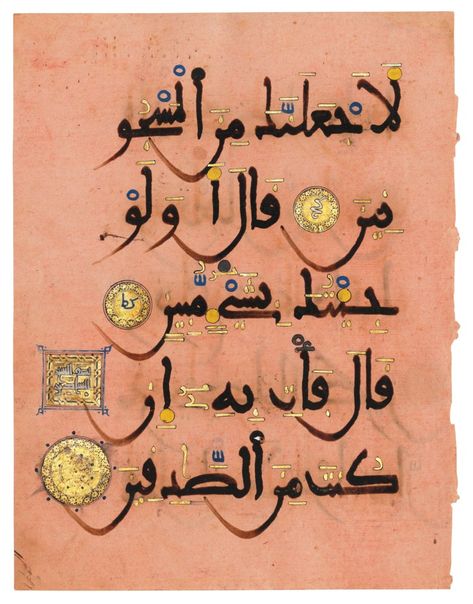 لأجعلنك من المسجو
نين قال أولو
جئتك بشيء مبين
قال فأت به إن
كنت من الصدقين